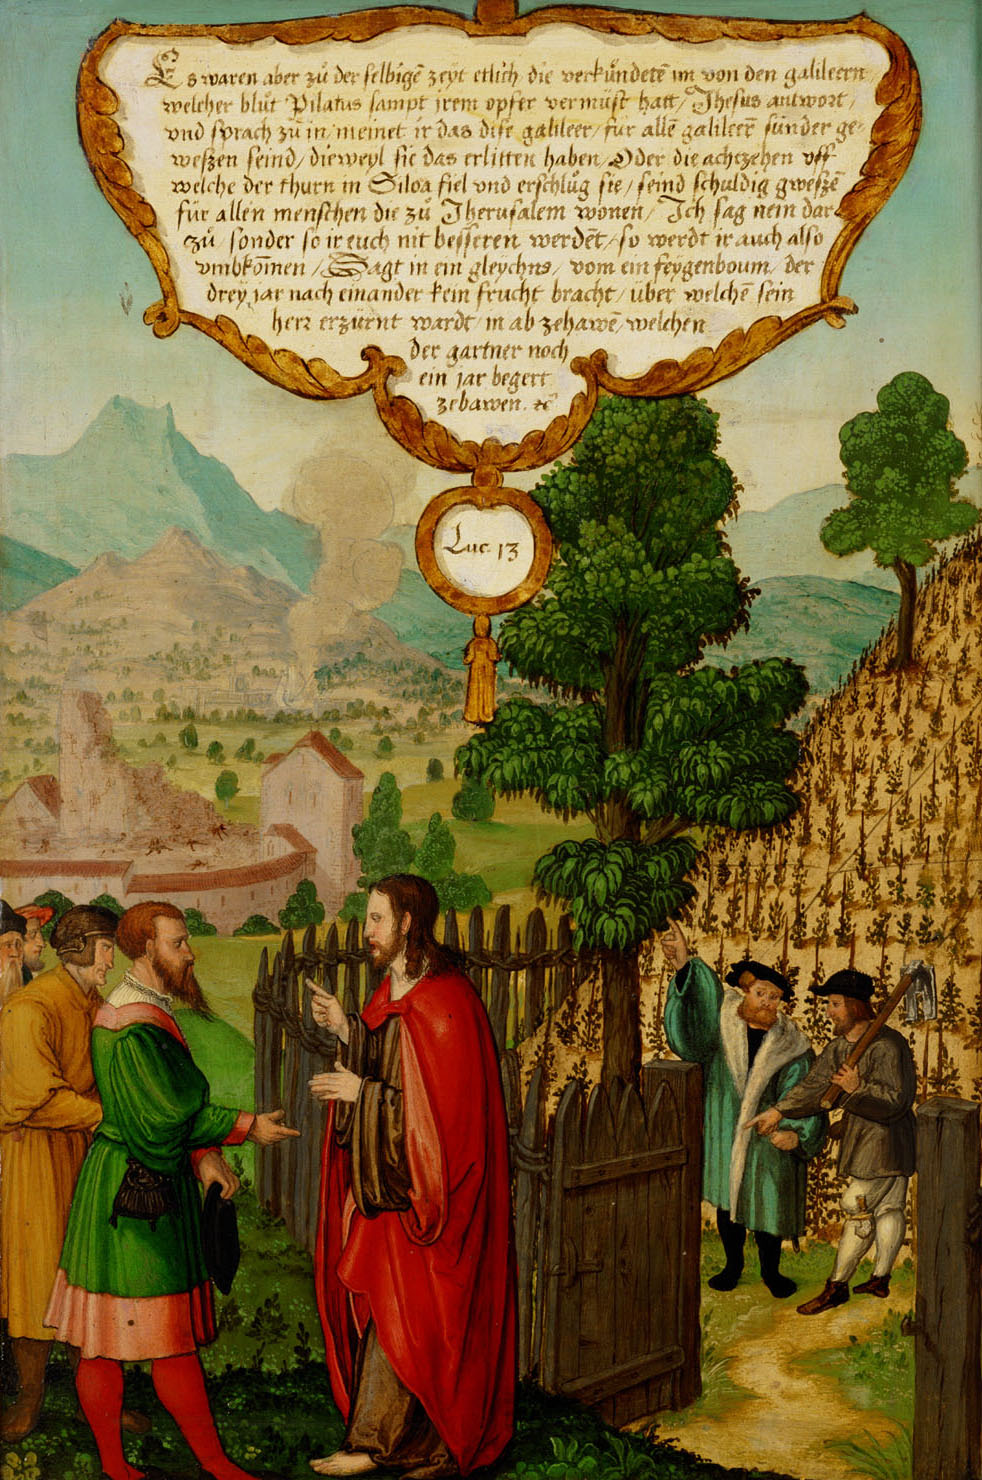 Es waren aber zů der selbigē zeyt etlich die verkůndetē im von den galileern,
welcher blůt Pilatus sampt jrem opfer vermüst hatt / Jhesus antwort /
vnd sprach zů in / meinet ir das dise galileer / für allē galileer̄ sünder ge-
weszen seind / dieweyl sie das erlitten haben / Oder die achtzehen vff
welche der thurn in Siloa fiel vnd erschlůg sie / seind schuldig gweszē
für allen menschen die zů Jherusalem wonen / Jch sag nein dar
zů / sonder so ir euch nit besseren werdēt / so werdt ir auch also
vmbkom̄en / Sagt in ein gleychns / vom ein feygenboum / der
drey jar nach einander kein frucht bracht / über welchē sein
herz erzürnt wardt / in ab zehawē / welchen
der gartner noch
ein jar begert
zebawen. ꝛc
Luc. 13